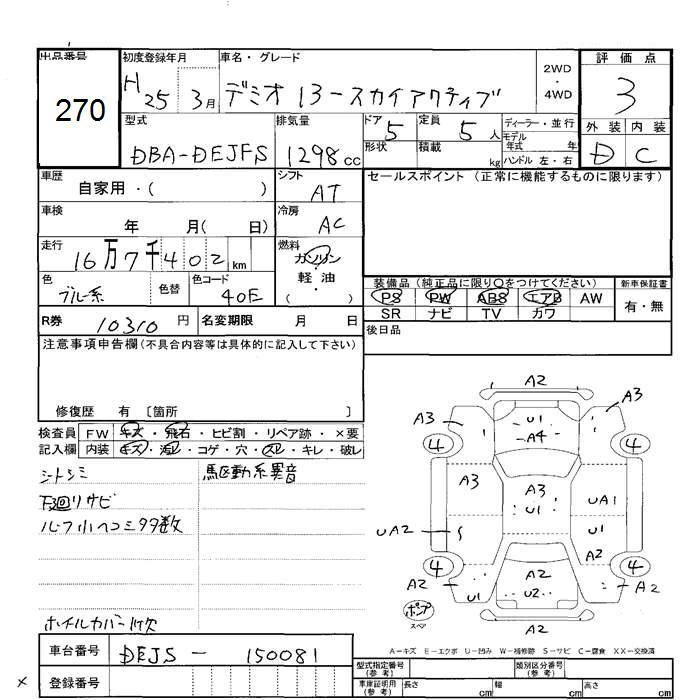 出品番号 初度登録年月 車名・グレード 2WD・4WD 評価点
270 H25 3月 デミオ 13-スカイアクティブ 3
型式 排気量 ドア 5 定員 5人 ディーラー・並行 外装 内装
DBA-DEJFS 1298cc 形状 積載 kg モデル年式 年 D C
ハンドル 左・右
車歴 自家用・( ) シフト AT セールスポイント (正常に機能するものに限ります)
車検 年 月( 日) 冷房 AC
走行 16万7千402km 燃料 ガソリン・軽油・( )
色 ブルー系 色替 色コード 40E
装備品 (純正品に限り○をつけてください) 新車保証書
PS PW ABS エアB AW 有・無
SR ナビ TV カワ
R券 10310円 名変期限 月 日 後日品
注意事項申告欄(不具合内容等は具体的に記入して下さい)
修復歴 有 〔箇所 〕
検査員 FW キズ・飛石・ヒビ割・リペア跡・×要
記入欄 内装 キズ・汚レ・コゲ・穴・スレ・キレ・破レ
シートシミ 駆動系異音
下廻りサビ
ルーフ小ヘコミ多数
ホイルカバー1ケ欠
A2
A3 U1 A3
A4
4 4
A3 A3 UA1
U1
UA2 U1
A2
4 4
A2 A2 A2
U1 U2
ポンプ
スペア A2
A-キズ E-エクボ U-凹み W-補修跡 S-サビ C-腐食 XX-交換済
車台番号 DEJFS - 150081
登録番号
型式指定番号(参考) 類別区分番号(参考)
車庫証明用(参考) 長さ cm 幅 cm 高さ cm
×